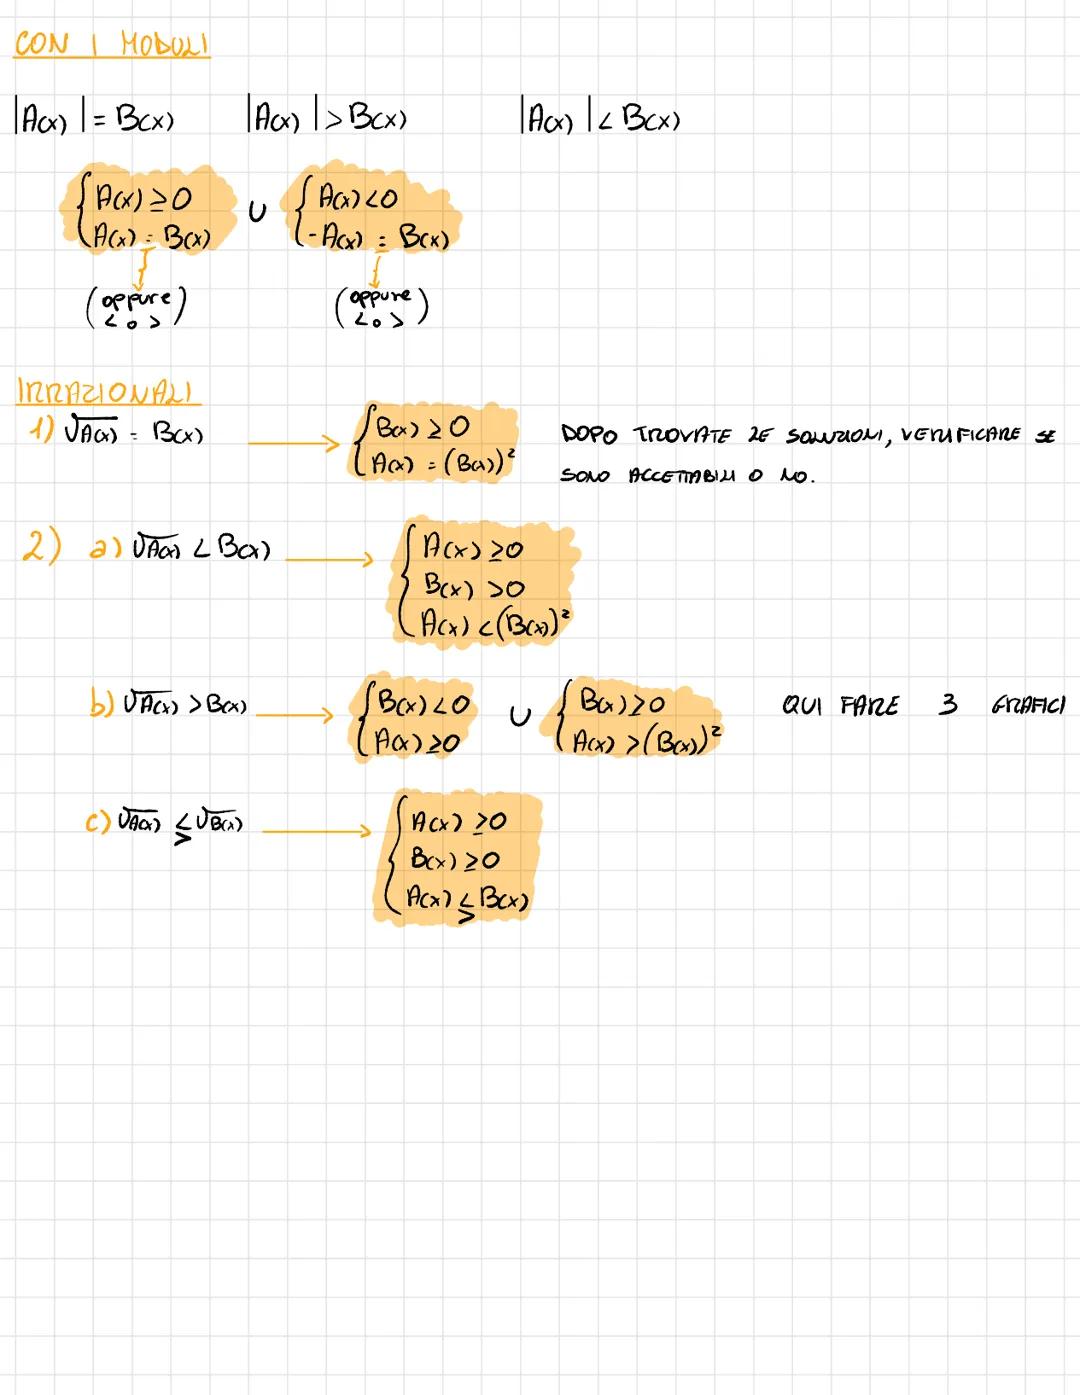 CON I MODULI
|A(x)| = B(x) |A(x)| > B(x) |A(x)| < B(x)
{ A(x) ≥ 0 ∪ { A(x) < 0
A(x) = B(x) -A(x) = B(x)
(oppure (oppure
< o >) < o >)
IRRAZIONALI
1) √A(x) = B(x) → { B(x) ≥ 0 DOPO TROVATE LE SOLUZIONI, VERIFICARE SE
A(x) = (B(x))² SONO ACCETTABILI O NO.
2) a) √A(x) < B(x) → { A(x) ≥ 0
B(x) > 0
A(x) < (B(x))²
b) √A(x) > B(x) → { B(x) < 0 ∪ { B(x) ≥ 0 QUI FARE 3 GRAFICI
A(x) ≥ 0 A(x) > (B(x))²
c) √A(x) ⋚ √B(x) → { A(x) ≥ 0
B(x) ≥ 0
A(x) ⋚ B(x)